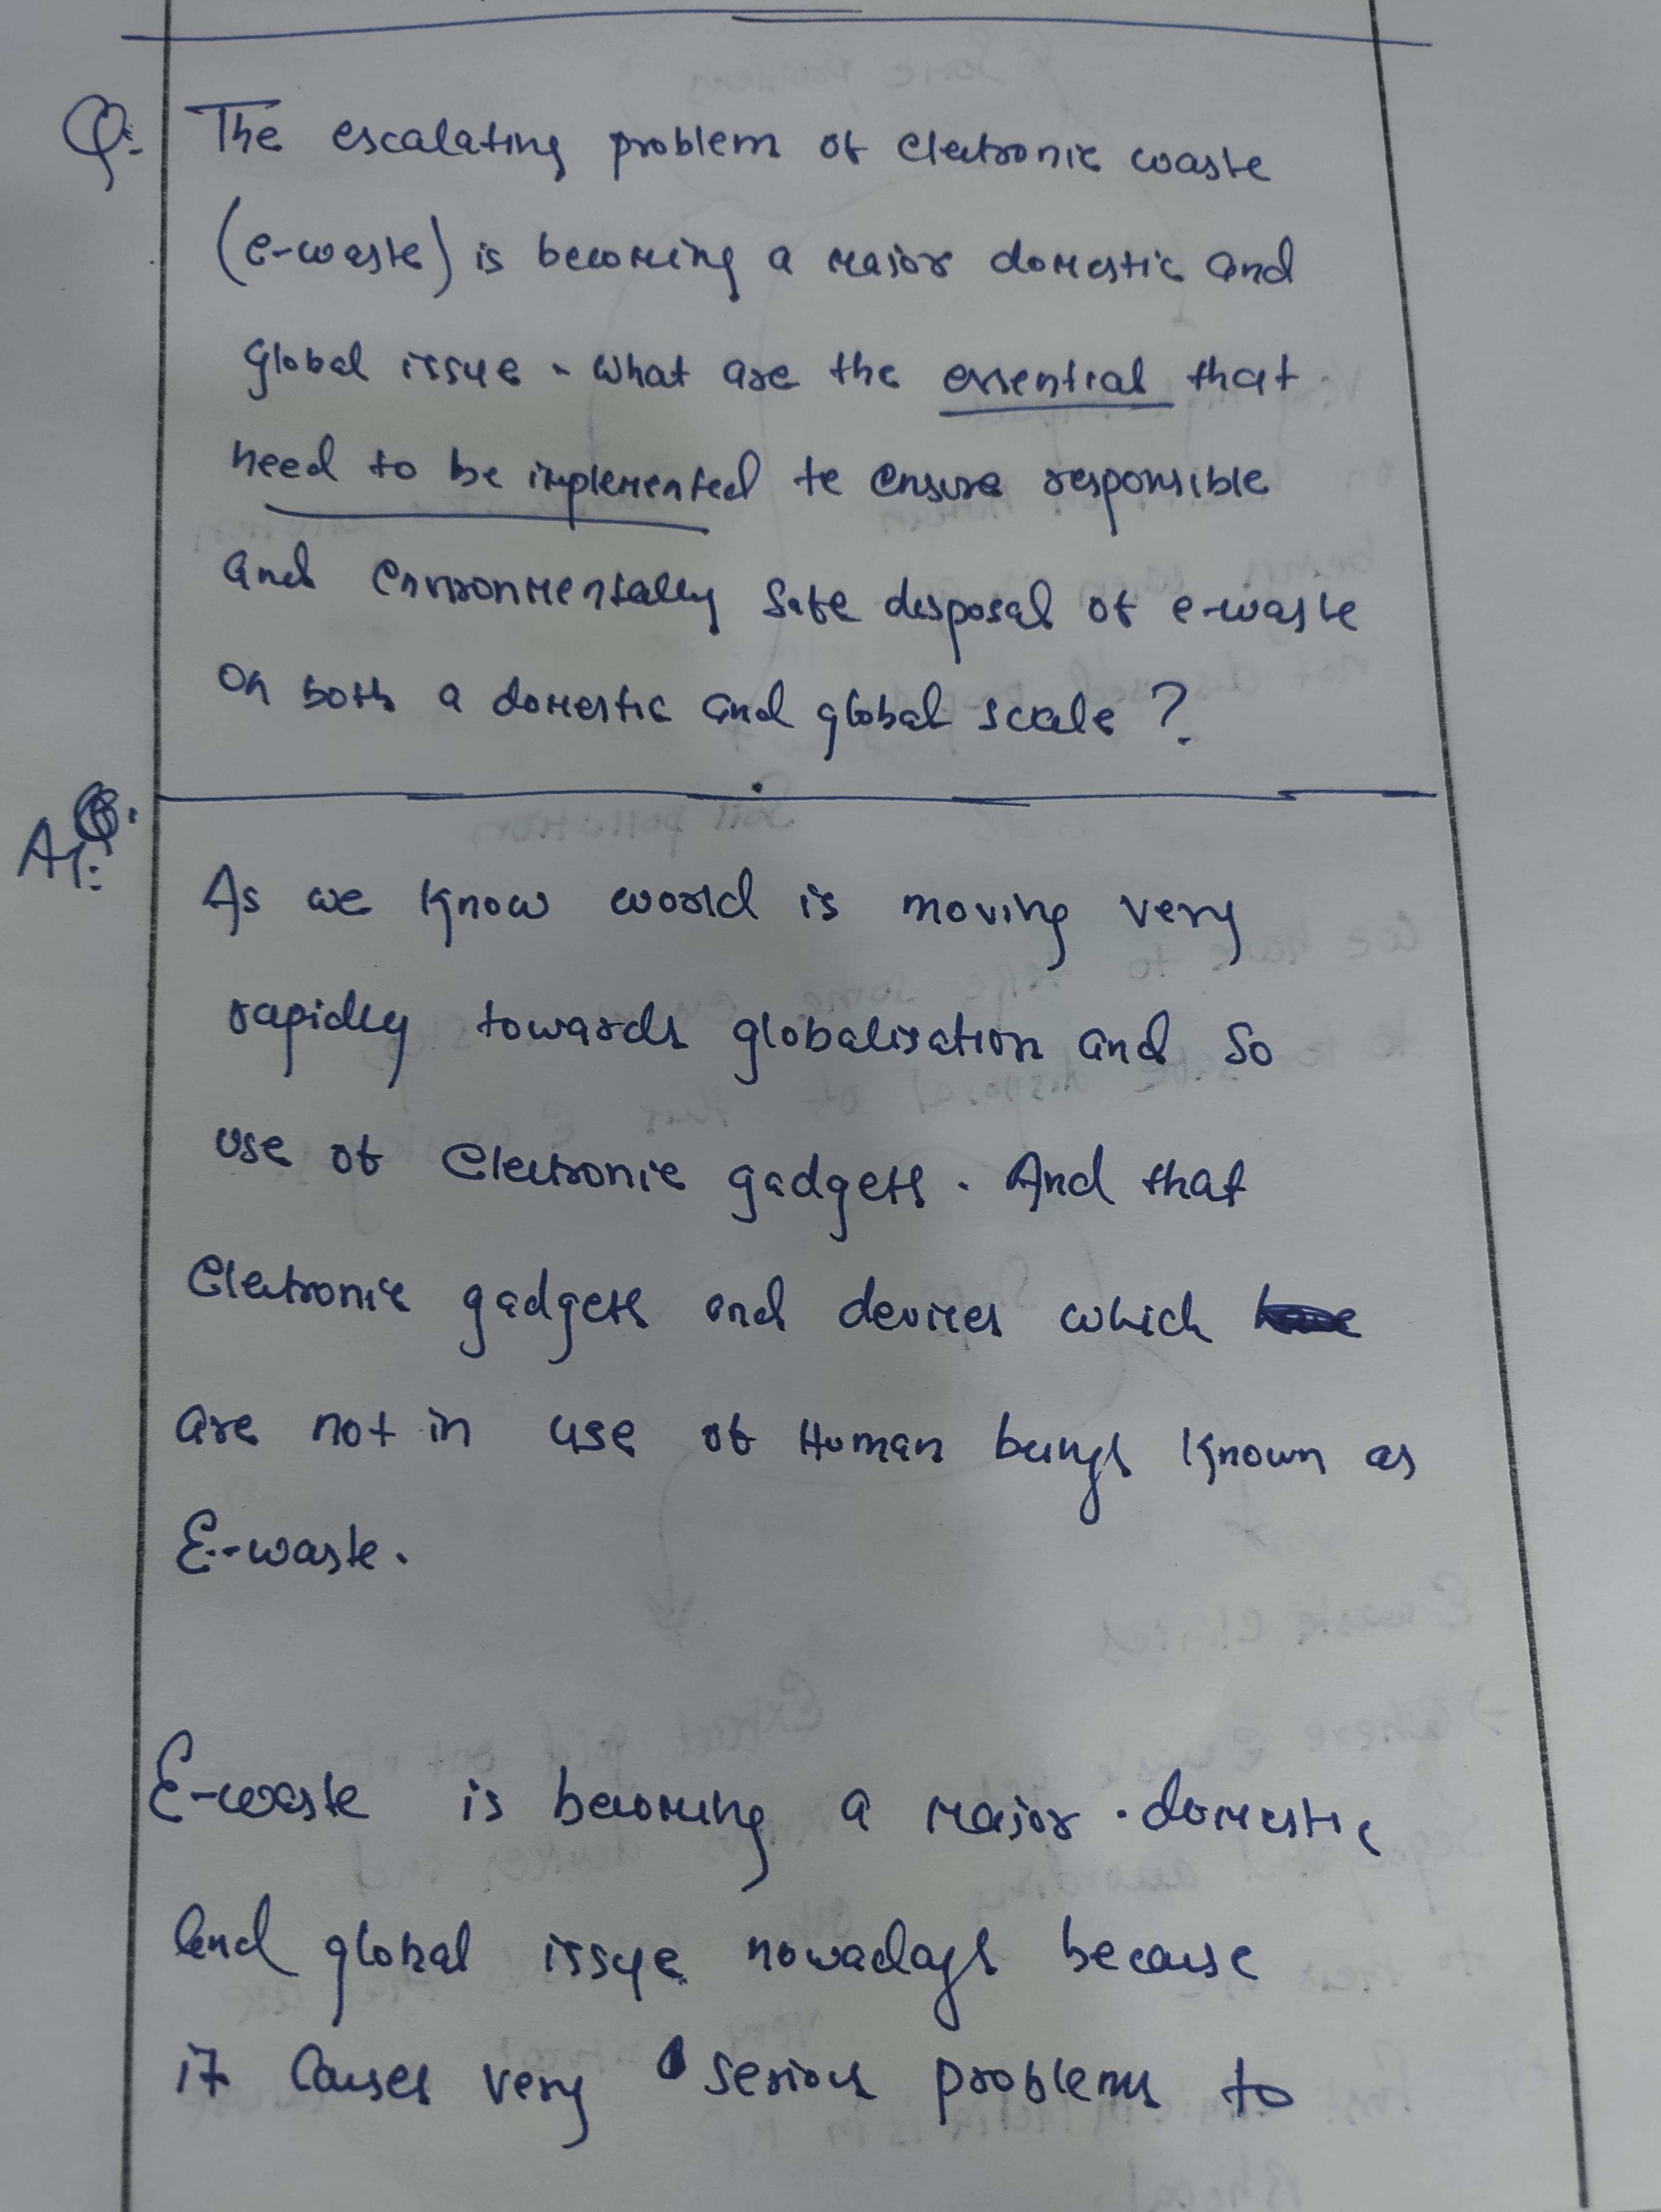 Q:- The escalating problem of electronic waste
(e-waste) is becoming a major domestic and
global issue. What are the essential that
need to be implemented to ensure responsible
and environmentally safe disposal of e-waste
on both a domestic and global scale?
A1:-
As we know world is moving very
rapidly towards globalisation and so
use of electronic gadgets. And that
electronic gadgets and devices which
are not in use of Human beings known as
E-waste.
E-waste is becoming a major domestic
and global issue nowadays because
it causes very serious problems to